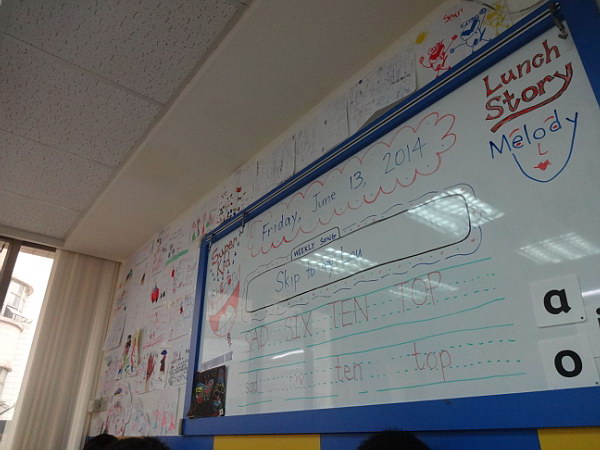 Lunch
Story
Melody
Friday, June 13, 2014
Super
WEEKLY SONG
Skip to my Lou
SIX TEN TOP
sad ten top
a
o